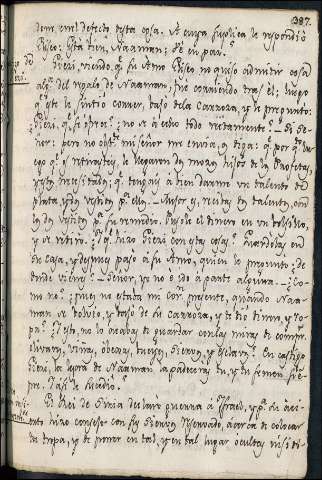 387.
tenir en el defecto de esta cosa. A cuya suplica le respondió
Eliseo: Está bien, Naaman; Vé en paz.
Giezi, viendo q.e su Amo Eliseo no quiso admitir cosa
alg.a del regalo de Naaman, fue corriendo tras él; luego
q.e este le sintió correr, bajó de la Carroza, y le preguntó:
Giezi, q.e se ofrece? no se á echo todo rectamente? Si Se-
ñor: pero no obst.te mi señor me envia, q.e diga: q.e por q.e lu-
ego q.e te retiraste, le llegaron dos mozos hijos de los Profetas,
y estos necesitados; q.e tengais á bien darme un talento de
plata, y dos vestidos p.a ellos. Mejor es, recibas dos talentos, con
los dos vestidos p.a su remedio. Púsole el dinero en un bolsillo,
y se retiró. Y q.e hizo Giezi con estas cosas? Guardólas en
su casa, y despues pasó á su Amo, quien le preguntó: de
donde vienes? Señor, yo no é ido á parte alguna. Co-
mo no? pues no estaba mi Cor.n presente, quando Naa-
man se volvió, y bajó de su Carroza, y te dió dinero, y ro-
pa? Y esto, no lo acabas de guardar con las miras de comprar
olivares, viñas, obejas, bueyes, siervos, y esclavas? En castigo
pues, la lepra de Naaman la padeceras tu, y tu semen siem-
pre. Y así le sucedió.
El Rei de Siria declaró guerra á Israel, y p.a su aci-
ento hizo consejo con sus Siervos, reservado, acerca de colocar
su tropa, y de poner en tal, y en tal lugar ocultas insidi-